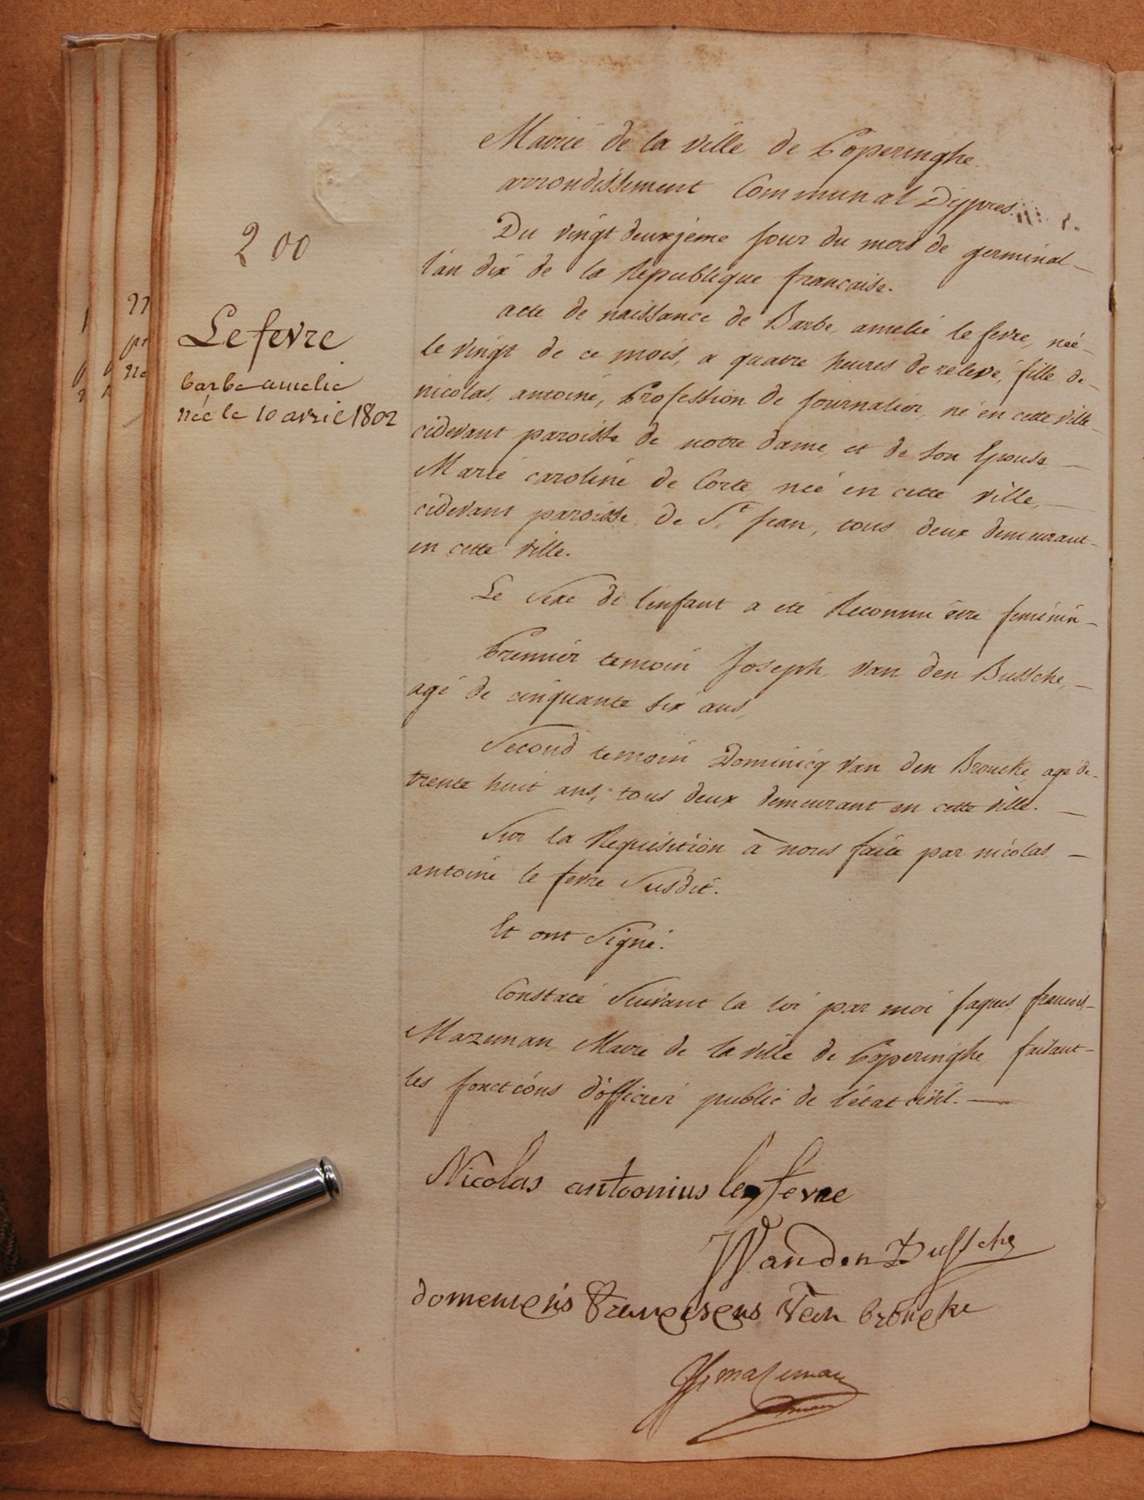 200
Lefevre
barbe amelie
née le 10 avril 1802
Mairie de la ville de Poperinghe
arrondissement Communal D'ypres.
Du vingt deuxjéme jour du mois de germinal
l'an dix de la Republique francaise.
acte de naissance de Barbe amelié le fevre, née
le vingt de ce mois, a quatre heures de relevé, fille de
nicolas antoine, Profession de journalier, né en cette ville
cidevant paroisse de notre dame, et de son Epouse
Marie caroline de Corte née en cette ville,
cidevant paroisse de St. jean, tous deux demeurant
en cette ville.
Le Sexe de l'enfant a eté Reconnu être feminin
Premier temoin Joseph Van den Bussche,
agé de cinquante six ans,
Second temoin Dominicq Van den Broucke, agé de
trente huit ans, tous deux demeurant en cette ville.
Sur la Requisition à nous faite par nicolas
antoine le fevre Susdit.
Et ont Signé.
Constaté Suivant la loi par moi jaques francois
Mazeman Maire de la ville de Poperinghe faisant
les fonctions d'officier public de l'état civil.
Nicolas antoonius le fevre
Vanden Bussche
Van broucke
mazeman